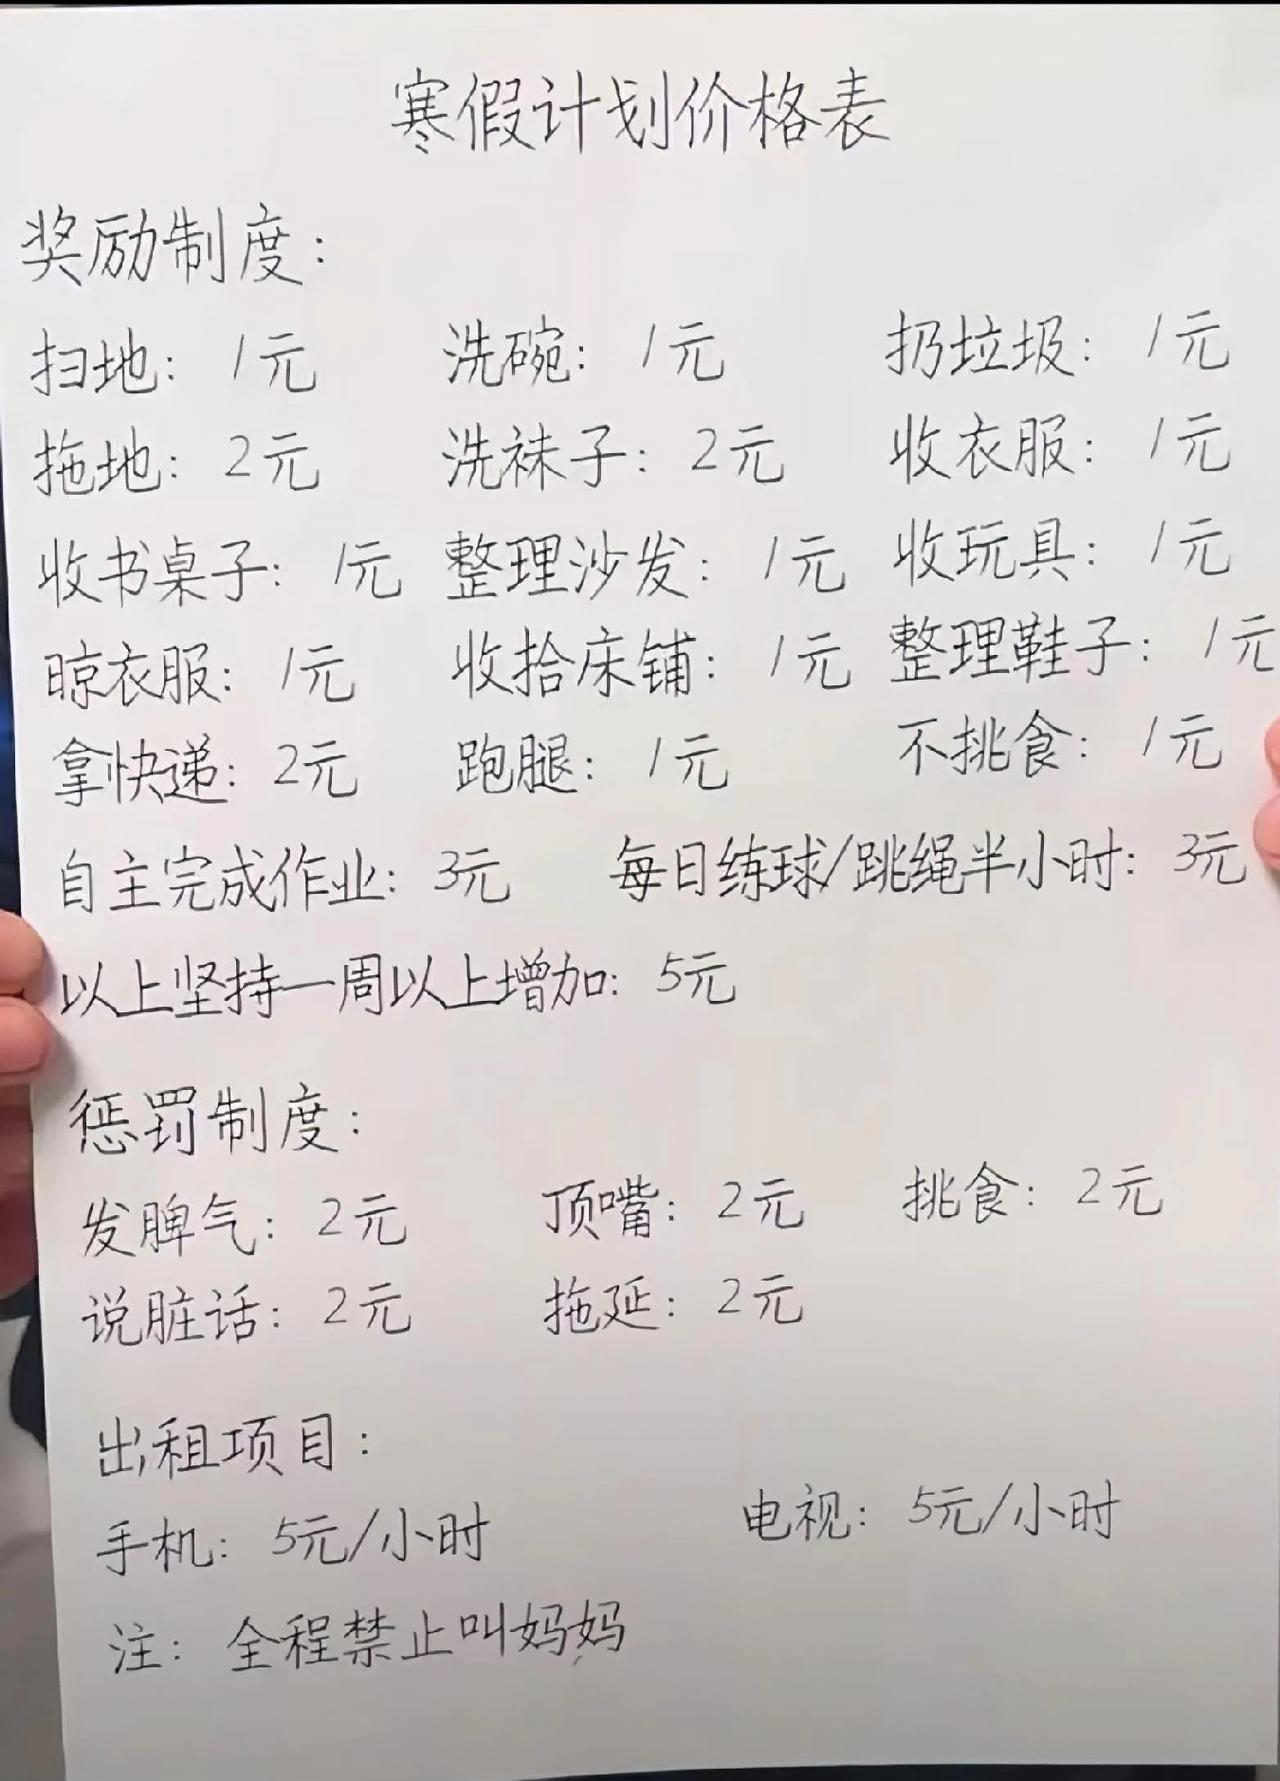 寒假计划价格表
奖励制度：
扫地：1元 洗碗：1元 扔垃圾：1元
拖地：2元 洗袜子：2元 收衣服：1元
收书桌子：1元 整理沙发：1元 收玩具：1元
晾衣服：1元 收拾床铺：1元 整理鞋子：1元
拿快递：2元 跑腿：1元 不挑食：1元
自主完成作业：3元 每日练球/跳绳半小时：3元
以上坚持一周以上增加：5元
惩罚制度：
发脾气：2元 顶嘴：2元 挑食：2元
说脏话：2元 拖延：2元
出租项目：
手机：5元/小时 电视：5元/小时
注：全程禁止叫妈妈